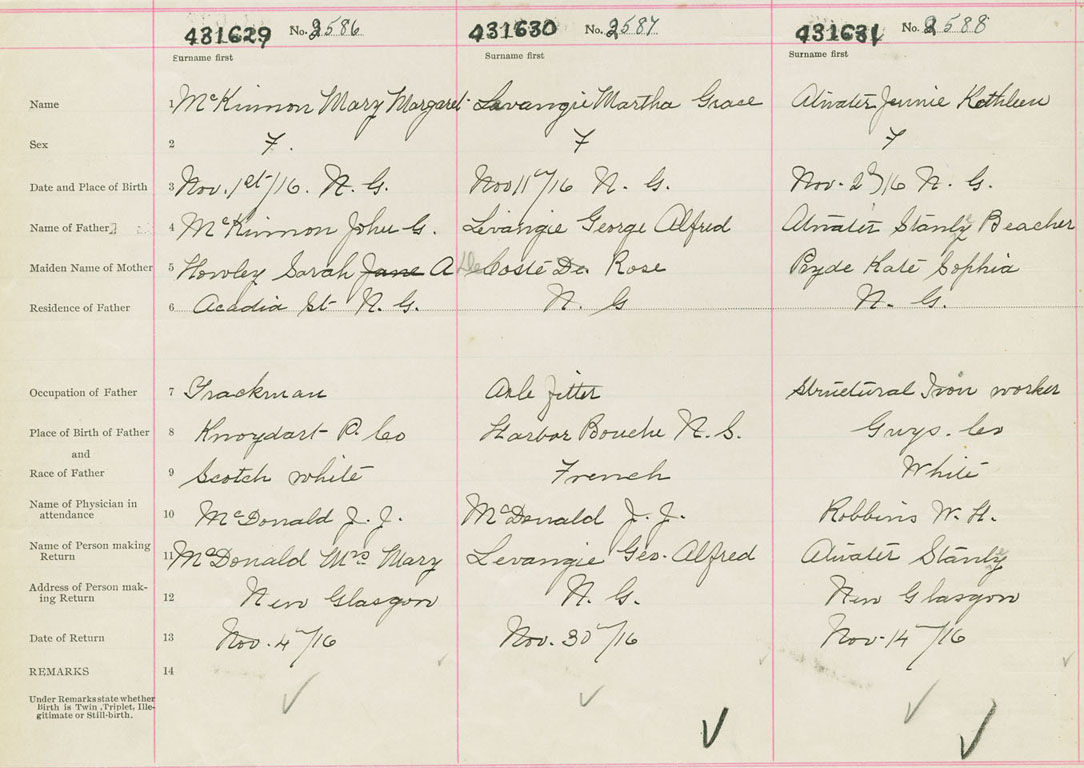 431629 No. 2586 431630 No. 2587 431631 No. 2588
Surname first Surname first Surname first
Name 1 McKinnon Mary Margaret Levangie Martha Grace Atwater Jennie Kathleen
Sex 2 F. F F
Date and Place of Birth 3 Nov. 1st/16. N. G. Nov 11th/16 N. G. Nov. 2nd/16 N. G.
Name of Father 4 McKinnon John G. Levangie George Alfred Atwater Stanly Beacher
Maiden Name of Mother 5 Howley Sarah Jane A De Coste De Rose Pryde Kate Sophia
Residence of Father 6 Acadia St N. G. N. G N. G.
Occupation of Father 7 Trackman Axle fitter Structural Iron worker
Place of Birth of Father 8 Knoydart P. Co Harbor Bouche N. S. Guys. Co
and
Race of Father 9 Scotch white French White
Name of Physician in
attendance 10 McDonald J. J. McDonald J. J. Robbins W. H.
Name of Person making
Return 11 McDonald Mrs Mary Levangie Geo. Alfred Atwater Stanly
Address of Person mak-
ing Return 12 New Glasgow N. G. New Glasgow
Date of Return 13 Nov. 4th/16 Nov. 30th/16 Nov. 14th/16
REMARKS 14
Under Remarks state whether
Birth is Twin, Triplet, Ille-
gitimate or Still-birth.